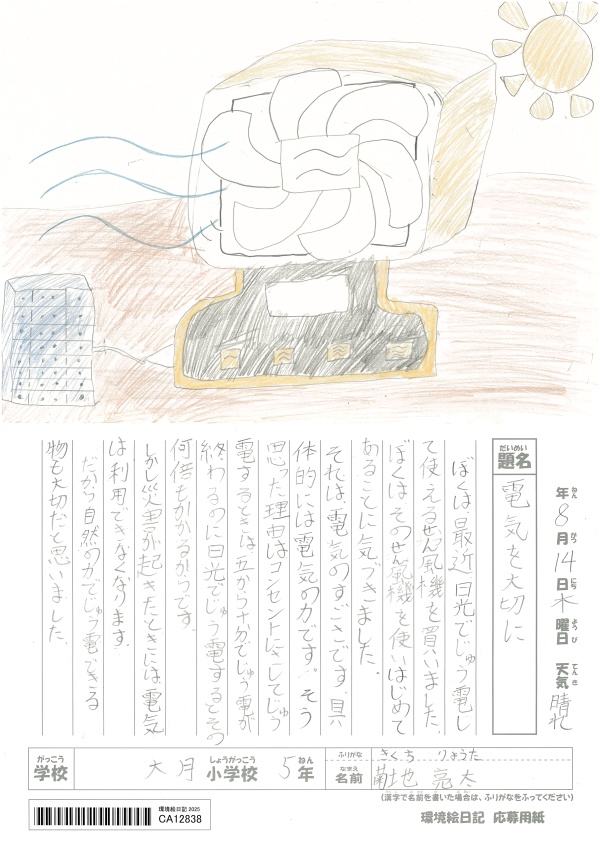 年8月14日木曜日 天気晴れ
ねん がつ にち ようび てんき
だいめい
題名 電気を大切に
ぼくは、最近、日光でじゅう電し
て使えるせん風機を買いました。
ぼくは、そのせん風機を使いはじめて
あることに気づきました。
それは、電気のすごさです。具
体的には電気の力です。そう
思った理由はコンセントにさしてじゅう
電するときは五から十分でじゅう電が
終わるのに日光でじゅう電するとその
何倍もかかるからです。
しかし災害が起きたときには電気
は利用できなくなります。
だから自然の力でじゅう電できる
物も大切だと思いました。
がっこう しょうがっこう ねん
学校 大月小学校 5年
ふりがな きくち りょうた
なまえ
名前 菊地 亮太
(漢字で名前を書いた場合は、ふりがなをふってください)
環境絵日記 2025
CA12838
環境絵日記 応募用紙